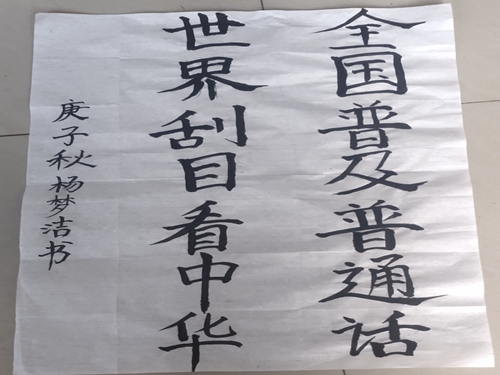 全国普及普通话
世界刮目看中华
庚子秋杨梦洁书